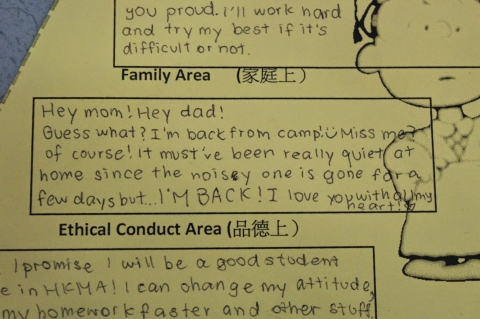 you proud. I'll work hard
and try my best if it's
difficult or not.
Family Area (家庭上)
Hey mom! Hey dad!
Guess what? I'm back from camp! Miss me?
of course! It must've been really quiet at
home since the noisey one is gone for a
few days but... I'M BACK! I love you with all my
heart!
Ethical Conduct Area (品德上)
I promise I will be a good student
e in HKMA! I can change my attitude,
my homework faster and other stuff.